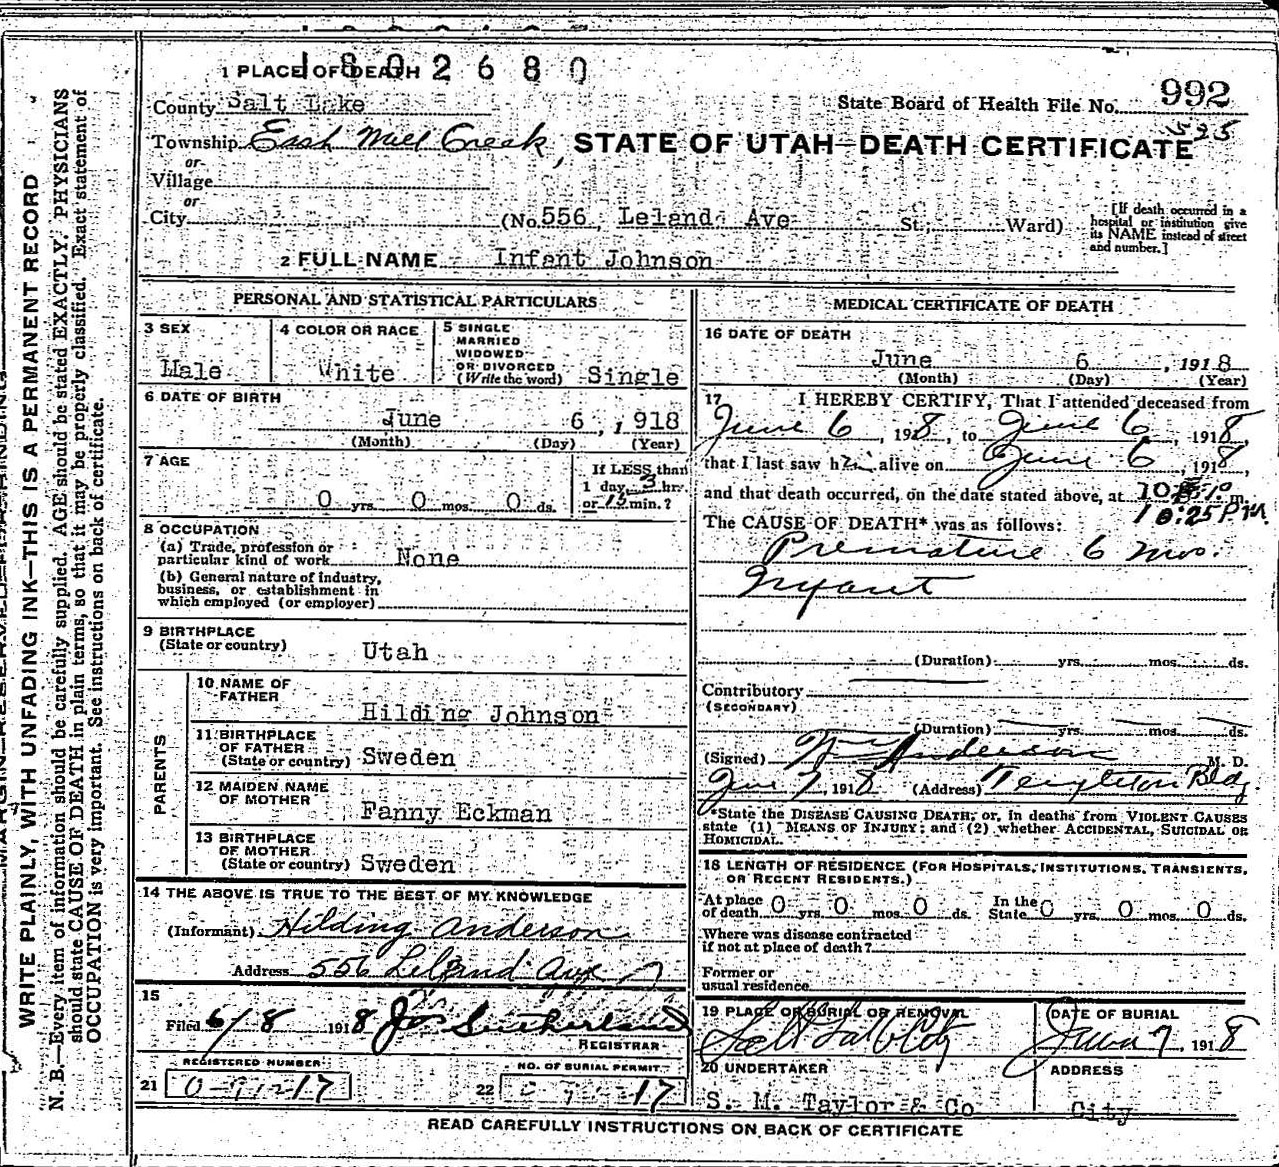 1802680
1 PLACE OF DEATH
County Salt Lake
State Board of Health File No. 992
595
Township East Mill Creek, STATE OF UTAH—DEATH CERTIFICATE
or
Village
or
City (No. 556, Leland Ave St.; Ward)
[If death occurred in a hospital or institution give its NAME instead of street and number.]
2 FULL NAME Infant Johnson
PERSONAL AND STATISTICAL PARTICULARS
3 SEX Male
4 COLOR OR RACE White
5 SINGLE MARRIED WIDOWED OR DIVORCED (Write the word) Single
6 DATE OF BIRTH
June 6, 1918
(Month) (Day) (Year)
7 AGE
0 yrs. 0 mos. 0 ds.
If LESS than 1 day 3 hr. or 15 min.?
8 OCCUPATION
(a) Trade, profession or particular kind of work None
(b) General nature of industry, business, or establishment in which employed (or employer)
9 BIRTHPLACE (State or country) Utah
PARENTS
10 NAME OF FATHER Hilding Johnson
11 BIRTHPLACE OF FATHER (State or country) Sweden
12 MAIDEN NAME OF MOTHER Fanny Eckman
13 BIRTHPLACE OF MOTHER (State or country) Sweden
14 THE ABOVE IS TRUE TO THE BEST OF MY KNOWLEDGE
(Informant) Hilding Anderson
Address 556 Leland Ave
15
Filed 6/8 1918 Jos Sutherland
REGISTRAR
REGISTERED NUMBER
21 17
NO. OF BURIAL PERMIT
22 17
MEDICAL CERTIFICATE OF DEATH
16 DATE OF DEATH
June 6, 1918
(Month) (Day) (Year)
17 I HEREBY CERTIFY, That I attended deceased from
June 6, 1918, to June 6, 1918,
that I last saw him alive on June 6, 1918,
and that death occurred, on the date stated above, at 10 m.
10:25 P.M.
The CAUSE OF DEATH* was as follows:
Premature 6 mos.
Infant
(Duration) yrs. mos. ds.
Contributory
(SECONDARY)
(Duration) yrs. mos. ds.
(Signed) Wm Anderson M. D.
June 7, 1918 (Address) Templeton Bldg.
*State the DISEASE CAUSING DEATH; or, in deaths from VIOLENT CAUSES
state (1) MEANS OF INJURY; and (2) whether ACCIDENTAL, SUICIDAL OR
HOMICIDAL.
18 LENGTH OF RESIDENCE (FOR HOSPITALS, INSTITUTIONS, TRANSIENTS,
OR RECENT RESIDENTS.)
At place of death 0 yrs. 0 mos. 0 ds. In the State 0 yrs. 0 mos. 0 ds.
Where was disease contracted
if not at place of death?
Former or
usual residence
19 PLACE OF BURIAL OR REMOVAL
Salt Lake City
DATE OF BURIAL
June 7, 1918
20 UNDERTAKER
S. M. Taylor & Co
ADDRESS
City
READ CAREFULLY INSTRUCTIONS ON BACK OF CERTIFICATE
WRITE PLAINLY, WITH UNFADING INK—THIS IS A PERMANENT RECORD
N. B.—Every item of information should be carefully supplied. AGE should be stated EXACTLY. PHYSICIANS
should state CAUSE OF DEATH in plain terms, so that it may be properly classified. Exact statement of
OCCUPATION is very important. See instructions on back of certificate.